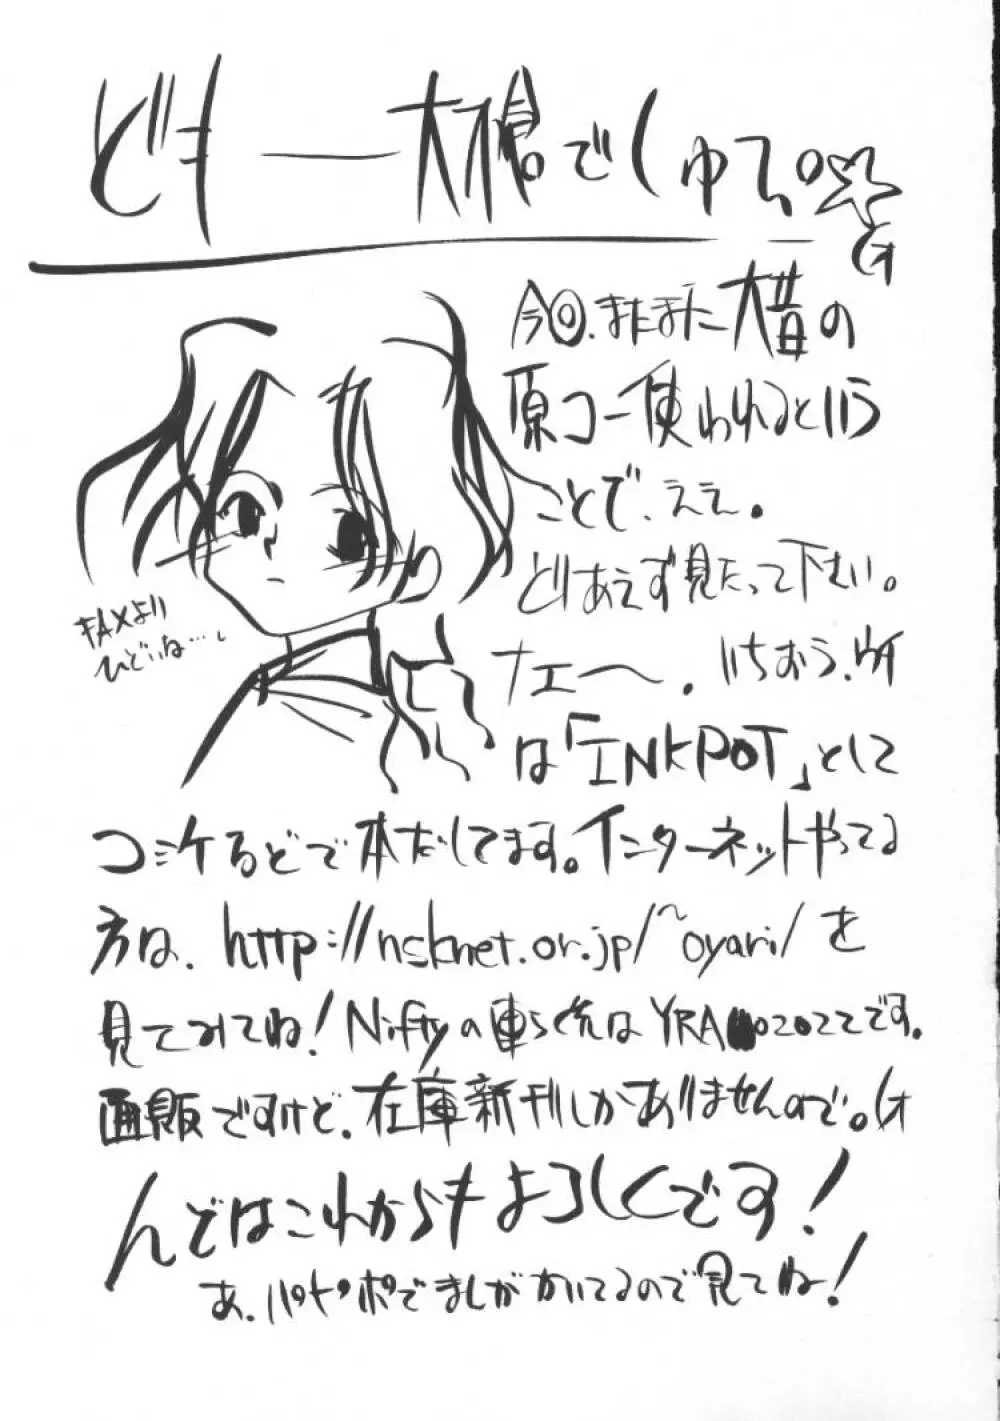 ども——大槍でしゅう。☆
今回、またまた大昔の
原コー使われるという
ことで、ええ。
とりあえず見たって下さい。
ナエ〜。いちおう、ウチ
は「INKPOT」として
FAXより
ひどいね…。
コミケなどで本だしてます。インターネットやってる
方は、http://nsknet.or.jp/~oyari/を
見てみてね!Niftyの連らく先はYRA02022です。
通販ですけど、在庫新刊しかありませんので。
んではこれからもよろしくです!
あ、パトポポでましがかいてるので見てね!